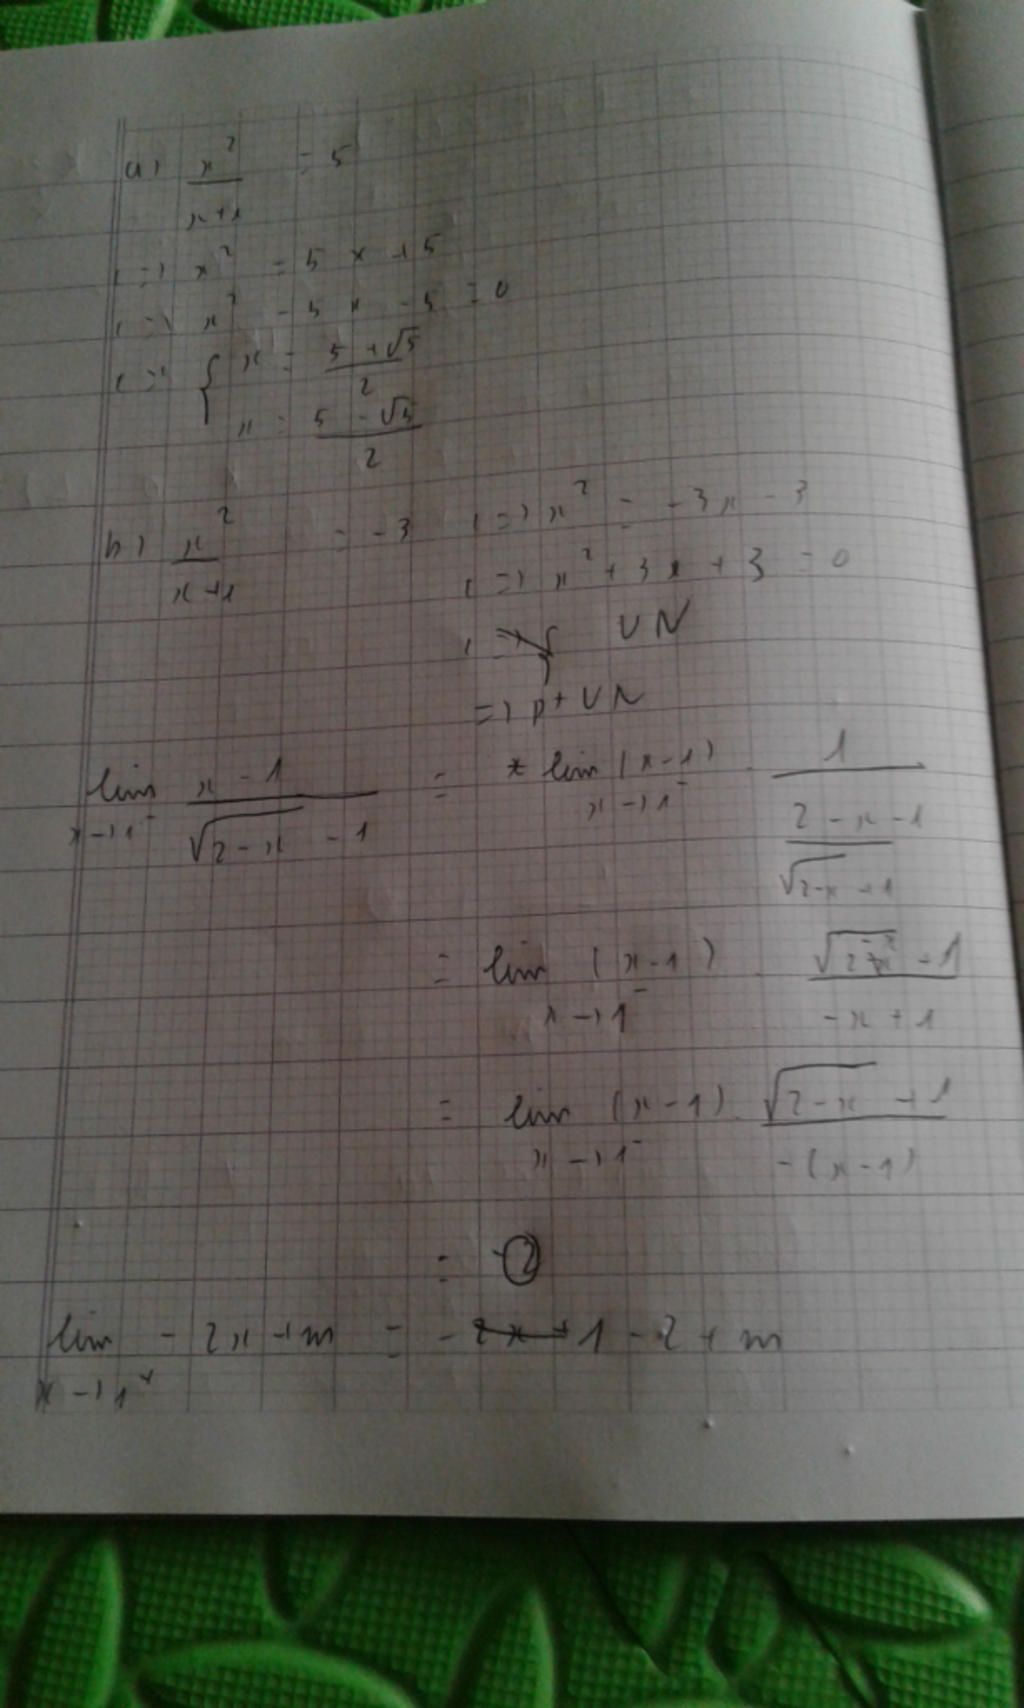 a) x² / x+1 = 5
<=> x² = 5x + 5
<=> x² - 5x - 5 = 0
<=> { x = 5 + √5 / 2
x = 5 - √5 / 2
b) x² / x+1 = -3 <=> x² = -3x - 3
<=> x² + 3x + 3 = 0
<=> VN
=> pt VN
lim x->1⁻ x - 1 / √2-x - 1 = lim x->1⁻ (x-1) . 1 / 2-x-1 / √2-x +1
= lim x->1⁻ (x-1) . √2-x +1 / -x+1
= lim x->1⁻ (x-1) . √2-x +1 / -(x-1)
= -2
lim x->1⁺ -2x + m = -2 + m